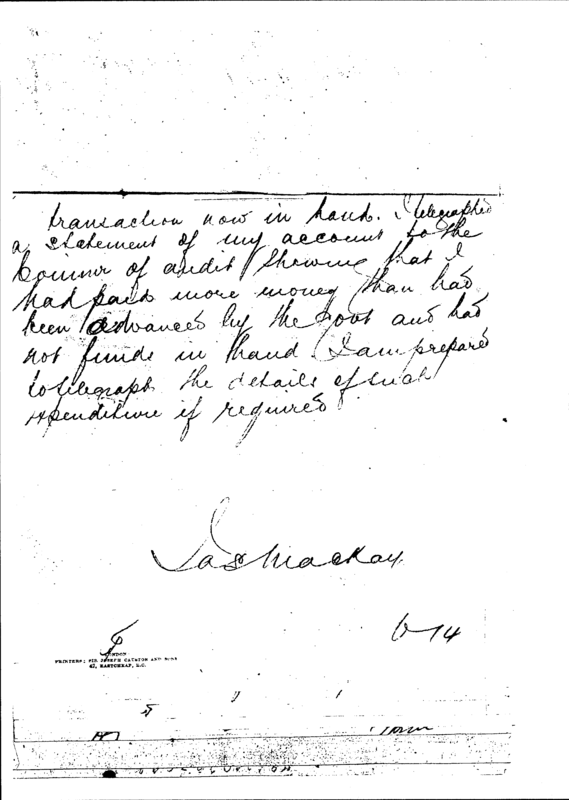 transaction now in hand. I telegraphed
a statement of my account to the
of audit shewing that I
had paid more money than had
been advanced by the Govt and had
not funds in hand. I am prepared
to telegraph the details of such
expenditure if required
Jas Mackay
6-14
LONDON
PRINTERS; SIR JOSEPH CAUSTON AND SONS
47, EASTCHEAP, E.C.